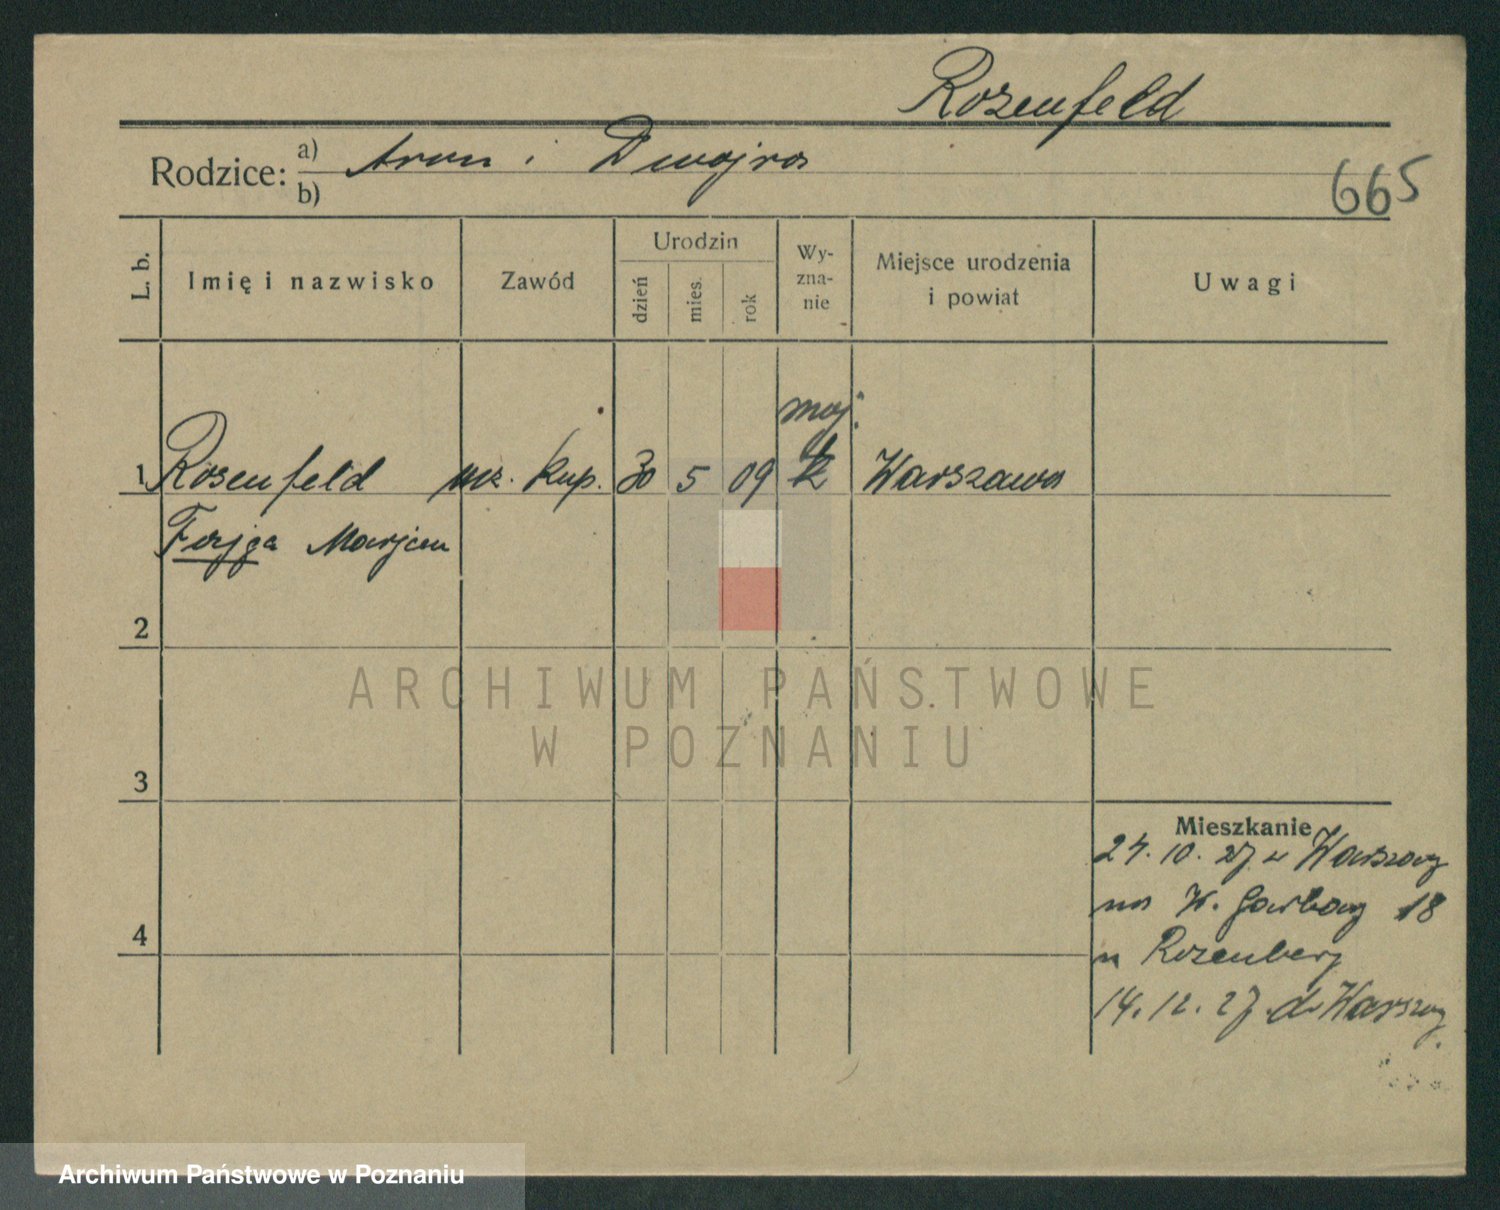 Rosenfeld
Rodzice: a) Aron i Dwojra
b)
665
L. b.
Imię i nazwisko
Zawód
Urodzin
dzień
mies.
rok
Wy-
zna-
nie
Miejsce urodzenia
i powiat
Uwagi
moj.
1 Rosenfeld ucz. kup. 30 5 09 Warszawa
Fajga Marjem
2
ARCHIWUM PAŃSTWOWE
W POZNANIU
3
Mieszkanie
24. 10. 27 z Warszawy
na W. Garbary 18
4
u Rozenberg
14. 12. 27. do Warszawy
Archiwum Państwowe w Poznaniu